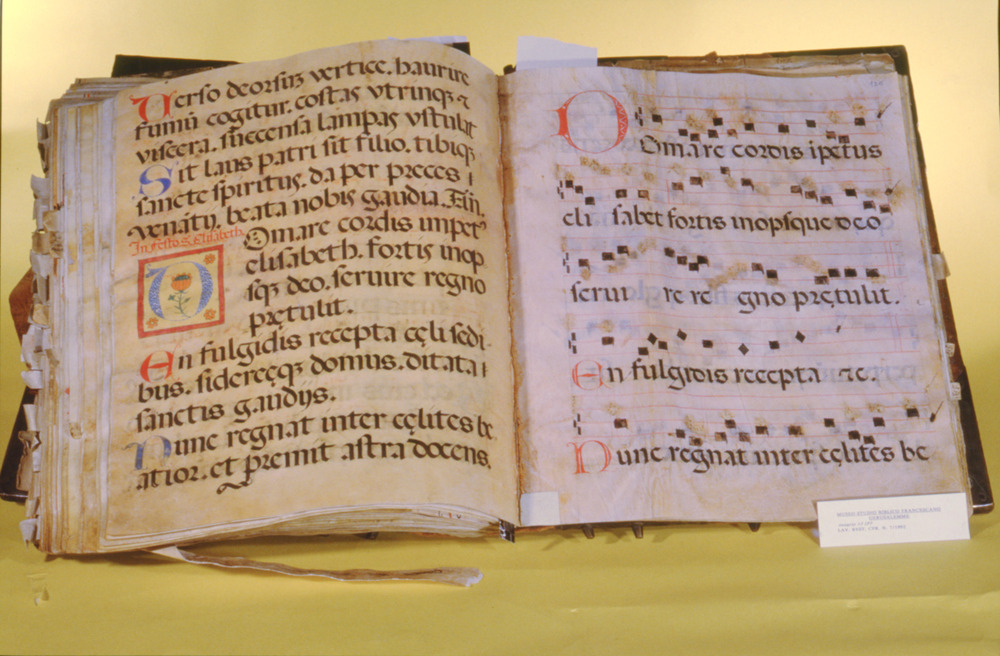 Verso deorsuz vertice. haurire
fumū cogitur. costas vtrinqz ꝛ
viscera. succensa lampas vstulat
Sit laus patri sit filio. tibiqz
sancte spiritus. da per preces
venatiy, beata nobis gaudia. Am.
In festo S. Elisabeth.
Domare cordis impet9
elisabeth. fortis inop
sqz deo. seruire regno
prętulit.
En fulgidis recepta cęli sedi
bus. sidereęqz domus. ditata
sanctis gaudijs.
Nunc regnat inter cęlites be
atior. et premit astra docens.
Domare cordis ipetus
eli sabet fortis inopsque deo
serui re re gno prętulit.
En fulgidis recepta ꝛc.
Nunc regnat inter cęlites be
MUSEO-STUDIO BIBLICO FRANCESCANO
GERUSALEMME